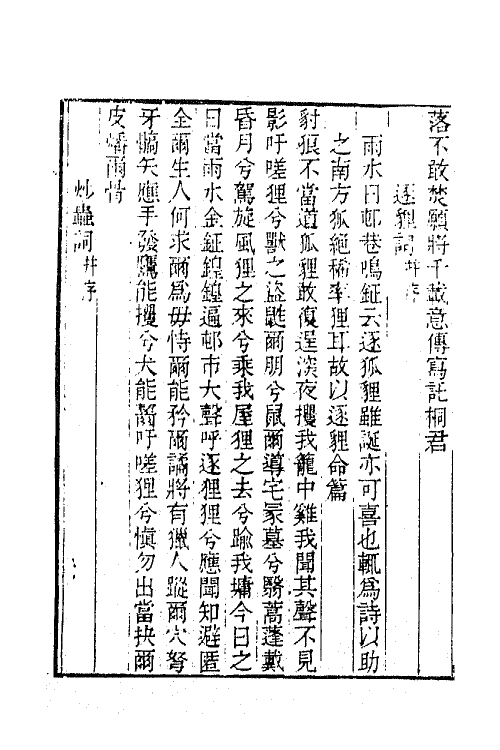 落不敢焚願將千載意傳寫託桐君
逐貍詞并序
雨水日邨巷鳴鉦云逐狐貍雖誕亦可喜也輒為詩以助
之南方狐絶稀率狸耳故以逐貍命篇
豺狼不當道狐貍敢復逞深夜攫我籠中雞我聞其聲不見
影吁嗟狸兮獸之盜鼪爾朋兮鼠爾導宅冢墓兮翳蒿蓬戴
昏月兮駕旋風狸之來兮乘我屋狸之去兮踰我墉今日之
日當雨水金鉦鍠鍠遍邨市大聲呼逐狸狸兮應聞知避匿
全爾生人何求爾為毋恃爾能矜爾譎將有獵人蹤爾穴弩
牙髇矢應手發鷹能攫兮犬能齧吁嗟狸兮愼勿出當抉爾
皮燔爾骨
炒蟲詞并序